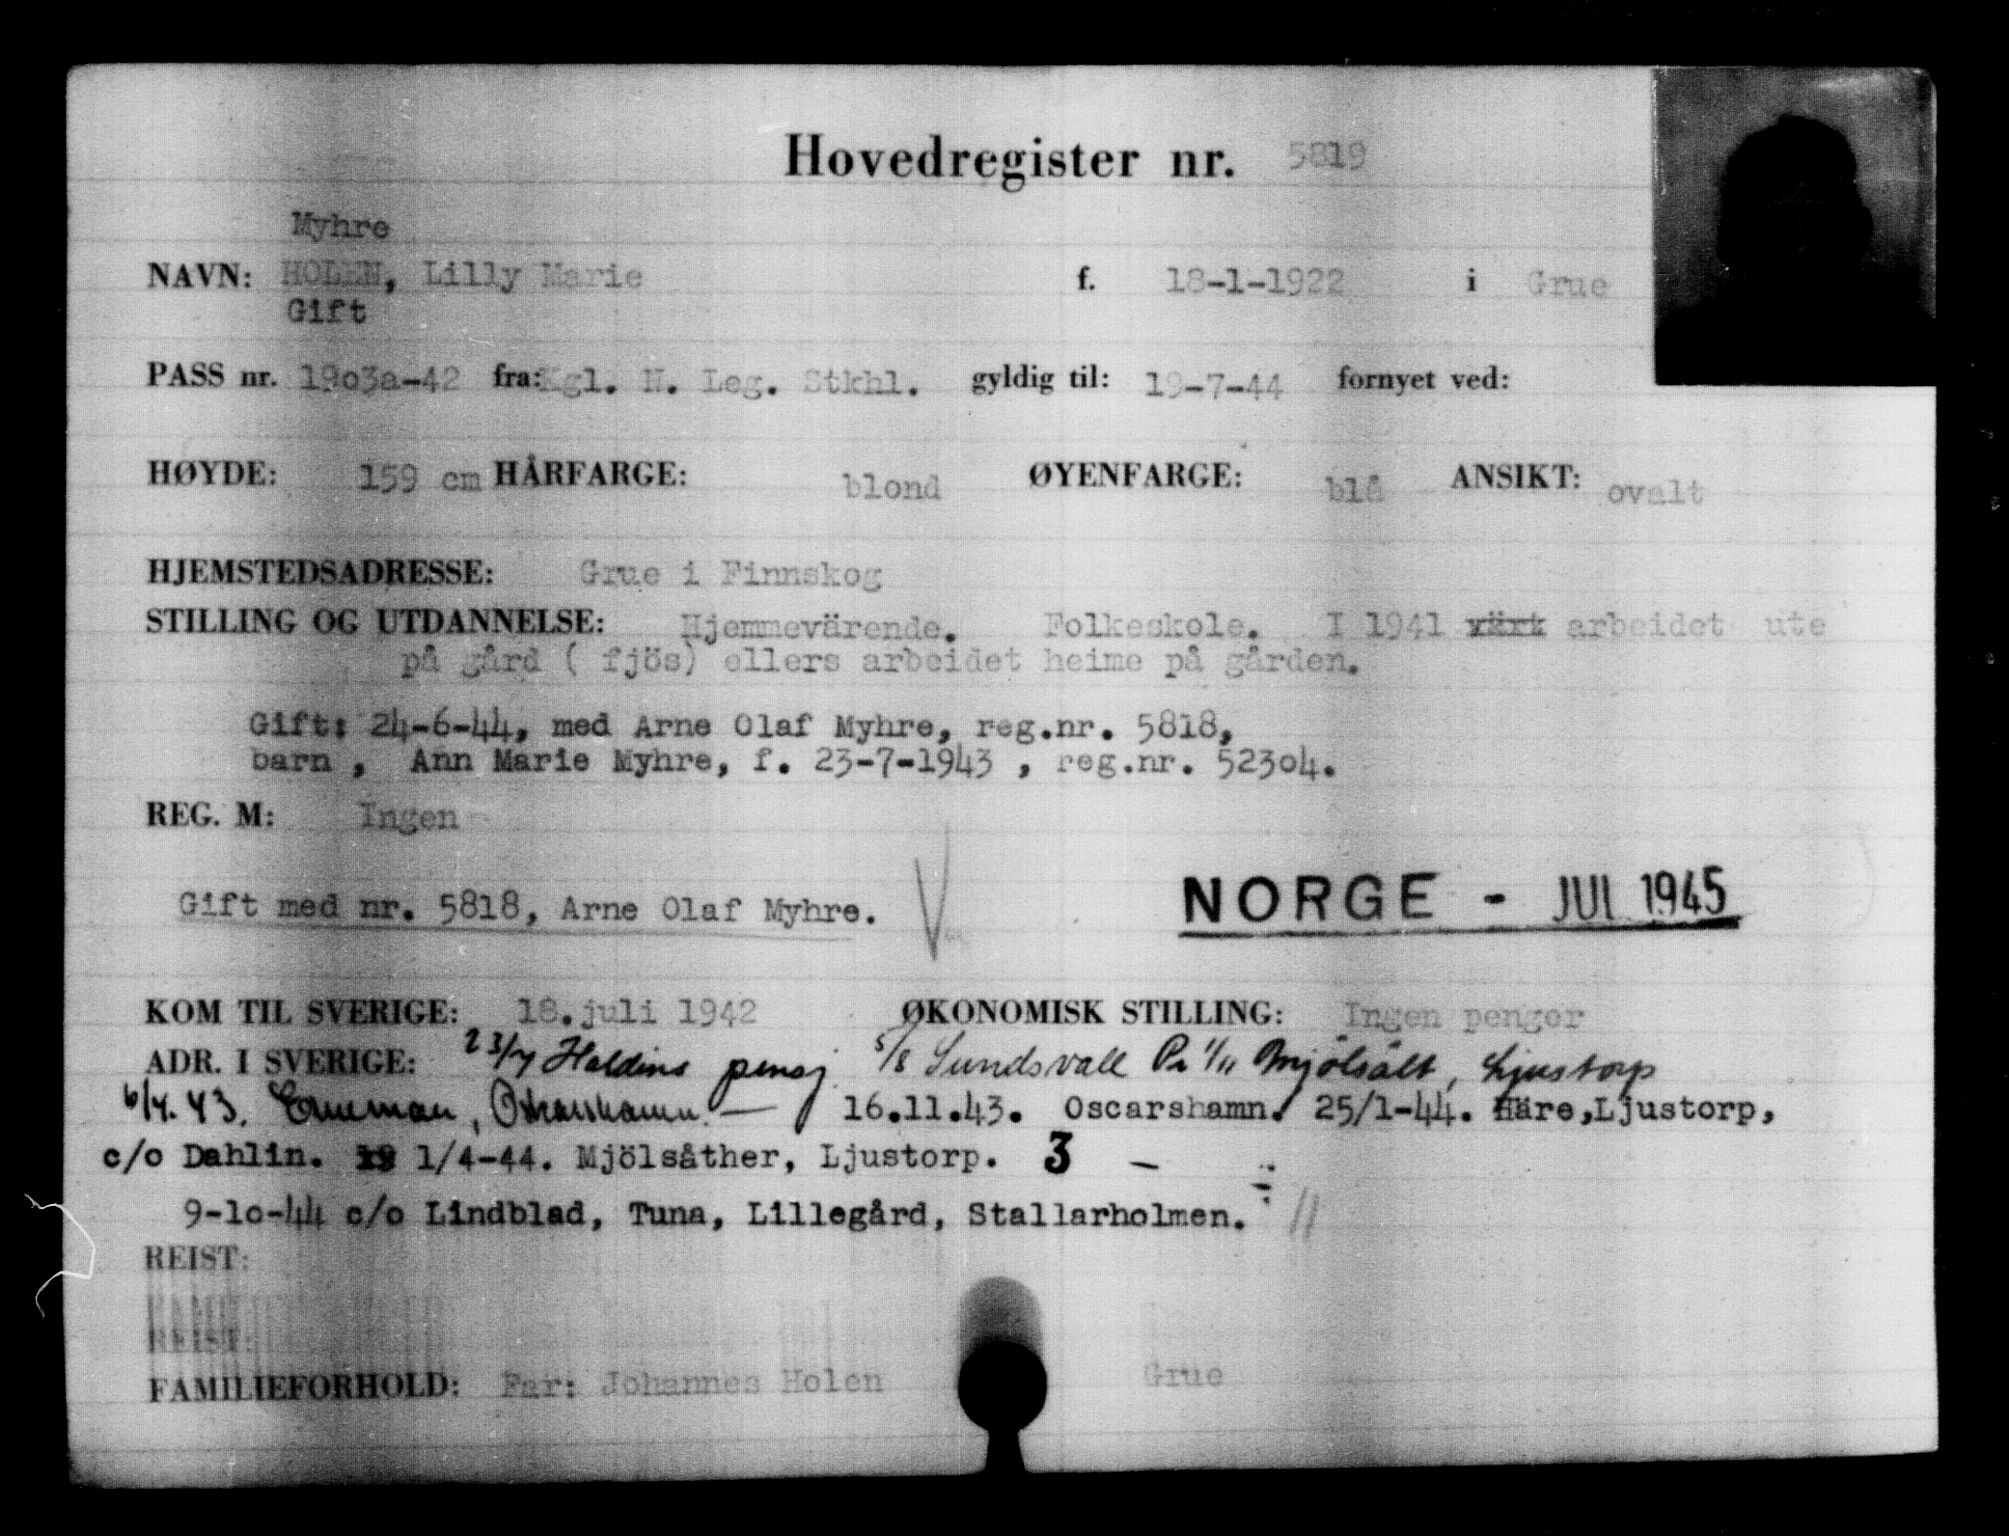 Hovedregister nr. 5819
Myhre
NAVN: HOLEN, Lilly Marie f. 18-1-1922 i Grue
Gift
PASS nr. 19o3a-42 fra: Kgl. N. Leg. Stkhl. gyldig til: 19-7-44 fornyet ved:
HØYDE: 159 cm HÅRFARGE: blond ØYENFARGE: blå ANSIKT: ovalt
HJEMSTEDSADRESSE: Grue i Finnskog
STILLING OG UTDANNELSE: Hjemmevärende. Folkeskole. I 1941 arbeidet ute
på gård ( fjös) ellers arbeidet heime på gården.
Gift: 24-6-44, med Arne Olaf Myhre, reg.nr. 5818,
barn , Ann Marie Myhre, f. 23-7-1943 , reg.nr. 523o4.
REG. M: Ingen
Gift med nr. 5818, Arne Olaf Myhre.
NORGE - JUL 1945
KOM TIL SVERIGE: 18.juli 1942 ØKONOMISK STILLING: Ingen penger
ADR. I SVERIGE: 23/7 Haldins pensj. 5/8 Sundsvall 1/11 Ljustorp
6/4.43. 16.11.43. Oscarshamn. 25/1-44. Häre,Ljustorp,
c/o Dahlin. 1/4-44. Mjölsåther, Ljustorp. 3 -
9-1o-44 c/o Lindblad, Tuna, Lillegård, Stallarholmen.
REIST:
REIST:
FAMILIEFORHOLD: Far: Johannes Holen Grue